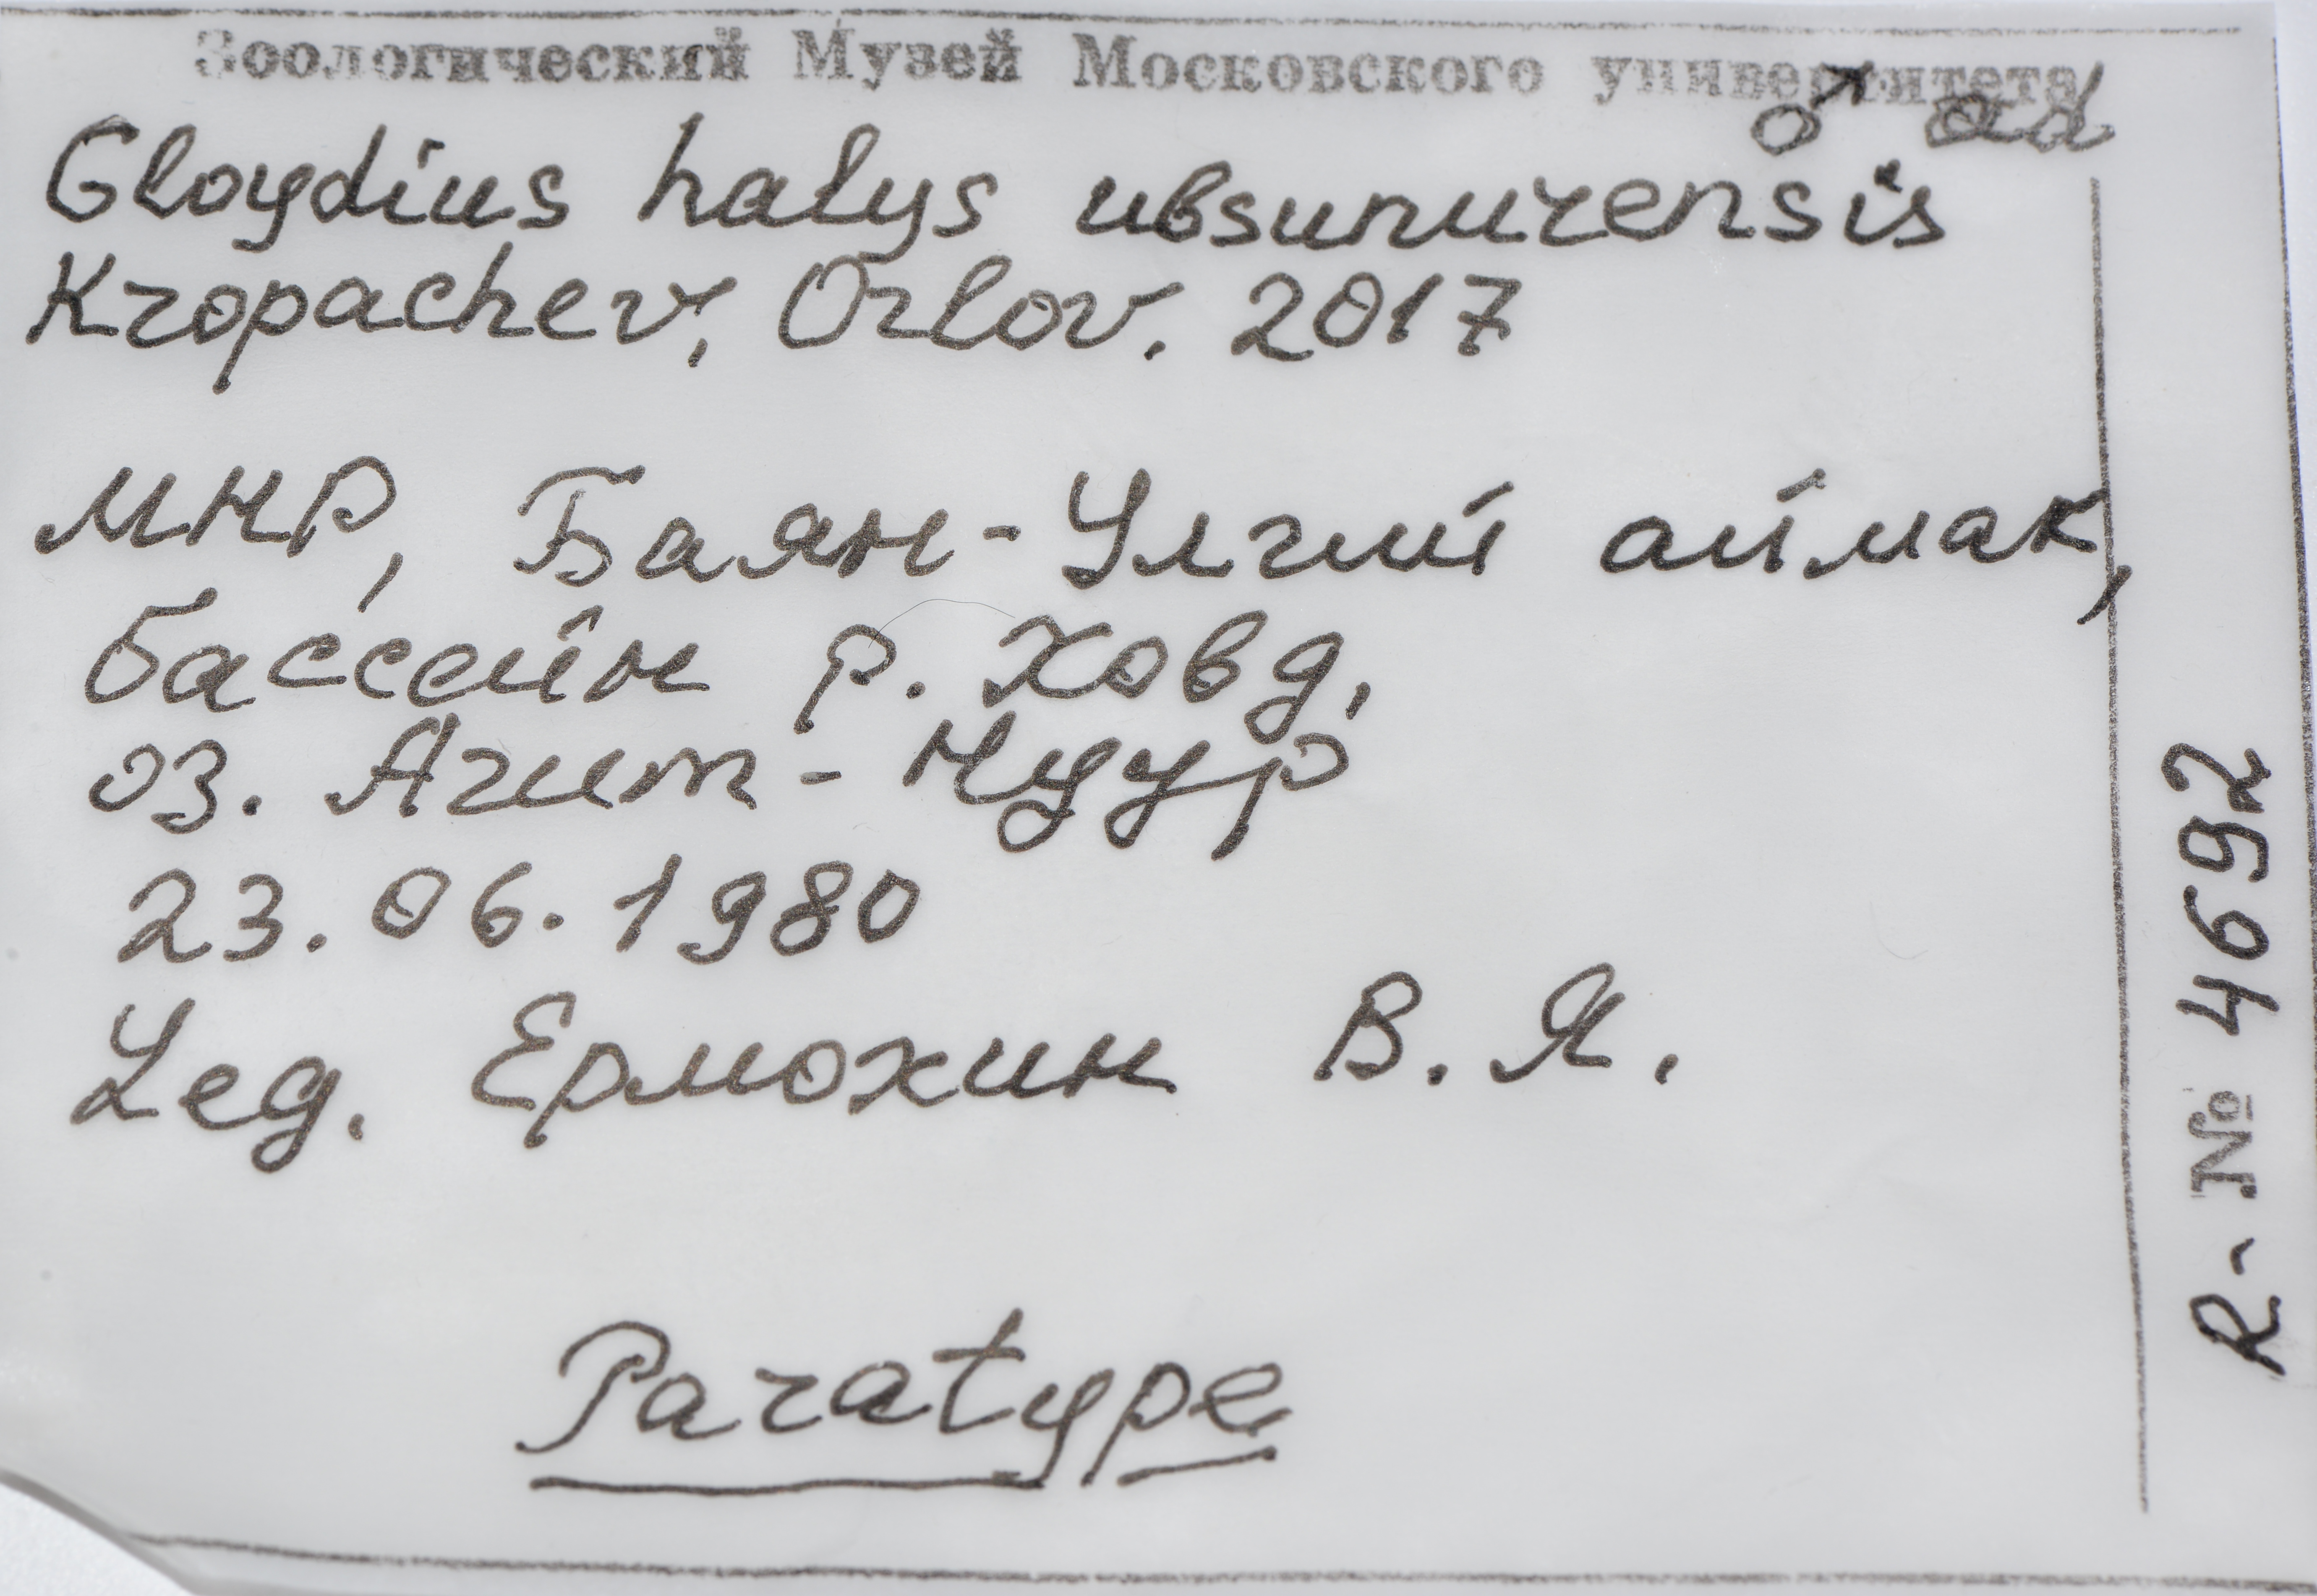 Зоологический Музей Московского университета
♂ ad
Gloydius halys ubsunurensis
Kropachev, Orlov. 2017
МНР, Баян-Улгий аймак,
бассейн р. Ховд,
оз. Агит-Нуур
23.06.1980
Leg. Ермохин В. Я.
Paratype
R-№ 4692